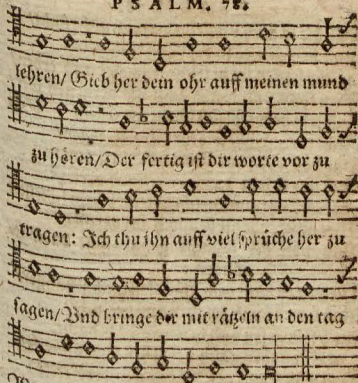 PSALM. 78.
lehren/ Gieb her dein ohr auff meinen mund
zu hören/ Der fertig ist dir worte vor zu
tragen: Ich thu ihn auff viel sprüche her zu
sagen/ Vnd bringe dir mit rätzeln an den tag